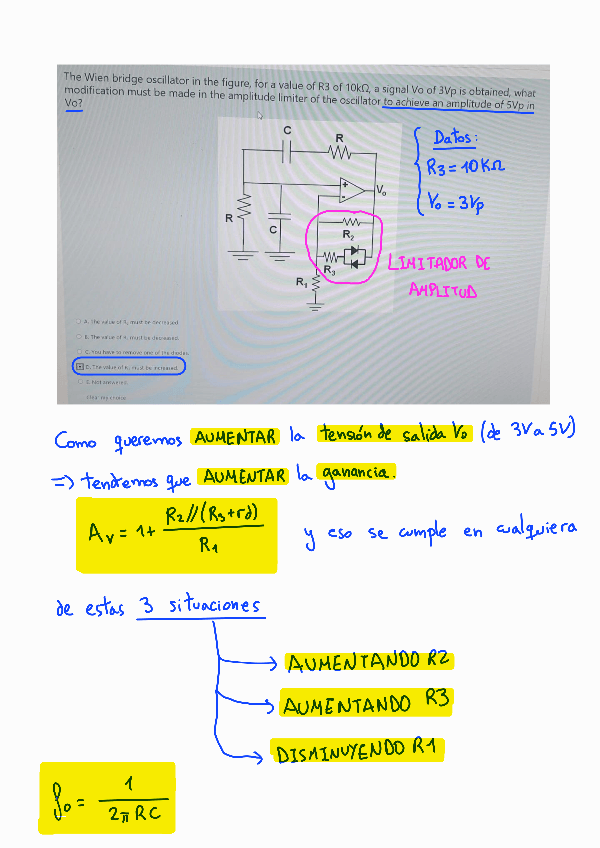 The Wien bridge oscillator in the figure, for a value of R3 of 10kΩ, a signal Vo of 3Vp is obtained, what
modification must be made in the amplitude limiter of the oscillator to achieve an amplitude of 5Vp in
Vo?
Datos:
R3 = 10KΩ
Vo = 3Vp
C
R
+
-
Vo
R
C
R2
R3
R1
LIMITADOR DE
AMPLITUD
A. The value of R, must be decreased.
B. The value of R, must be decreased.
C. You have to remove one of the diodes
D. The value of R, must be increased.
E. Not answered
Clear my choice
Como queremos AUMENTAR la tensión de salida Vo (de 3V a 5V)
=> tendremos que AUMENTAR la ganancia.
Av = 1+ R2//(R3+rd) / R1 y eso se cumple en cualquiera
de estas 3 situaciones
AUMENTANDO R2
AUMENTANDO R3
DISMINUYENDO R1
fo = 1 / 2πRC